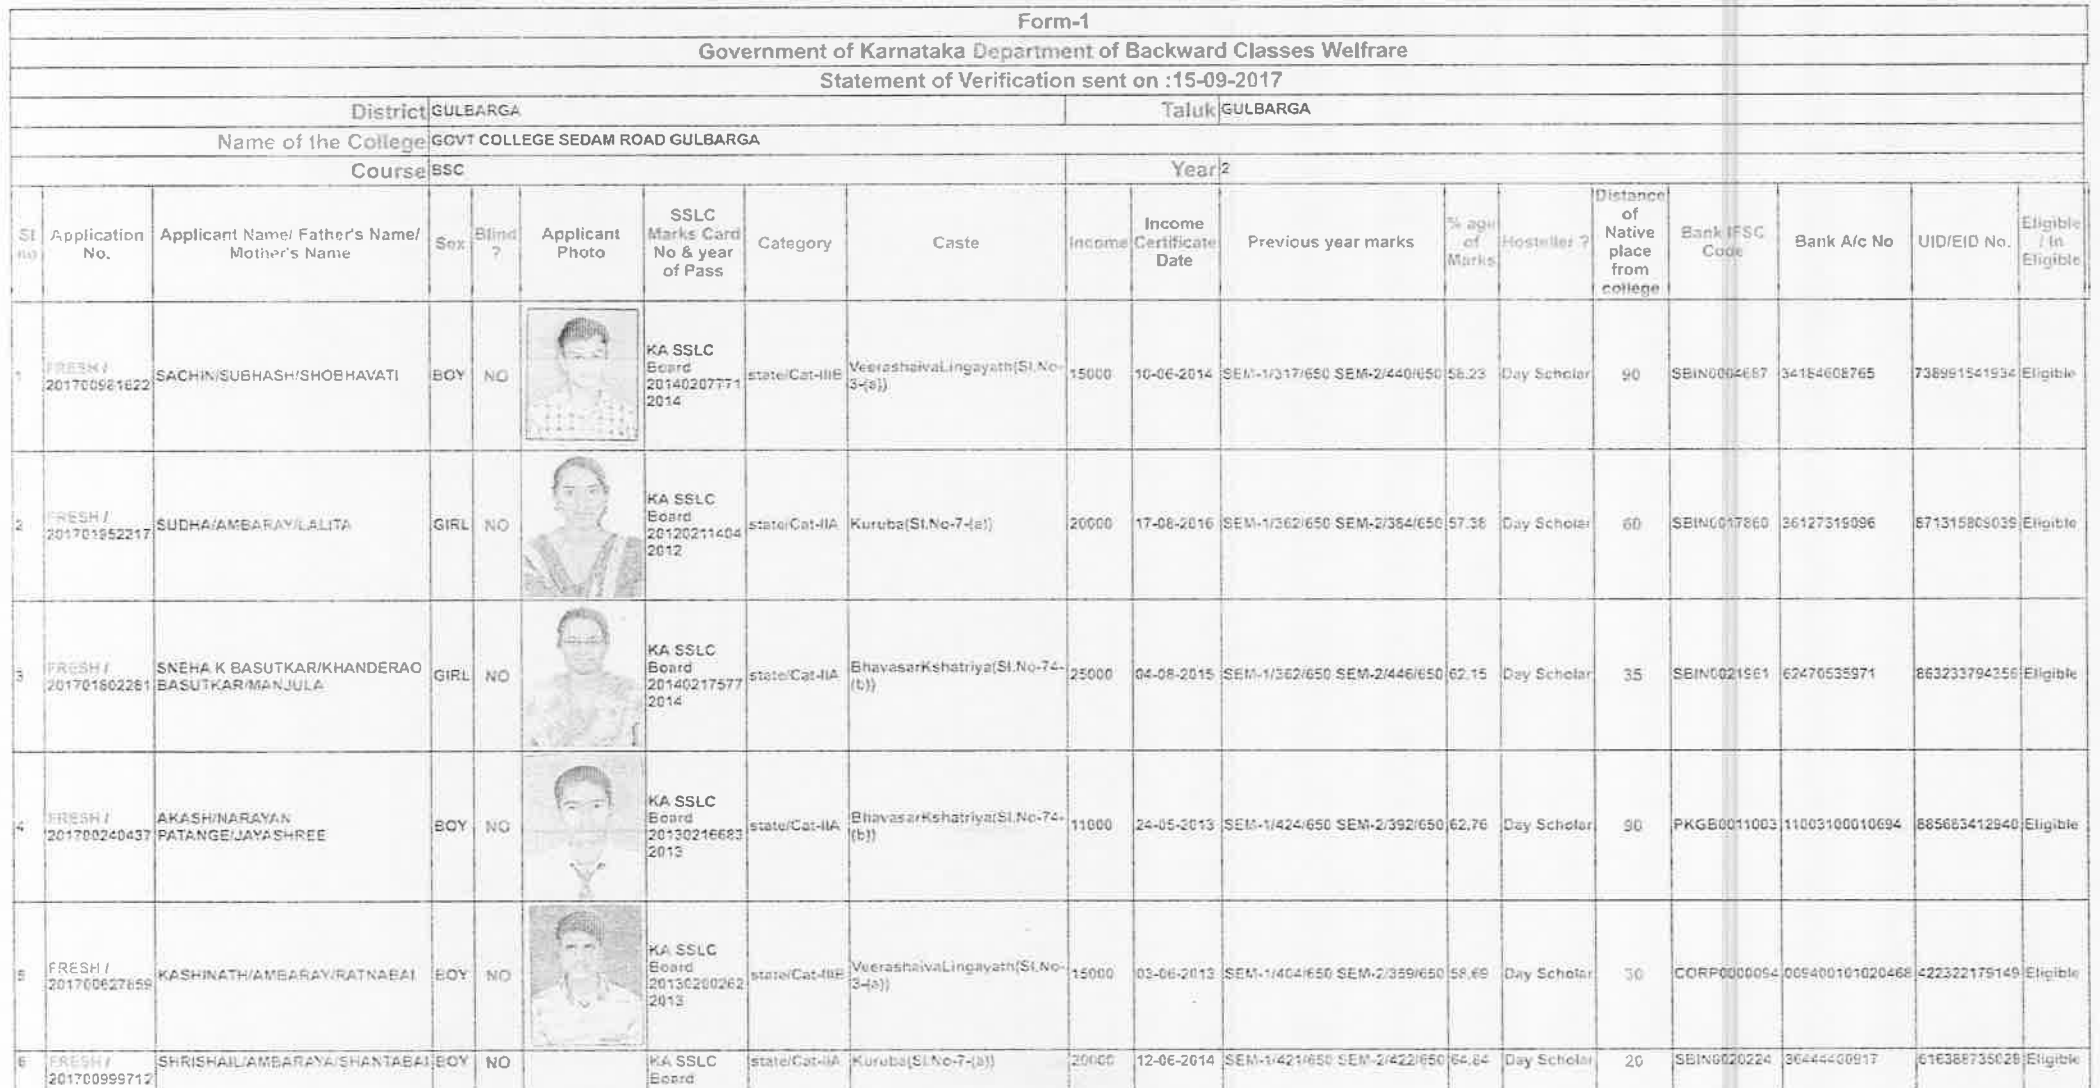 Form-1
Government of Karnataka Department of Backward Classes Welfrare
Statement of Verification sent on :15-09-2017
District GULBARGA Taluk GULBARGA
Name of the College GOVT COLLEGE SEDAM ROAD GULBARGA
Course BSC Year 2
Sl no Application No. Applicant Name/ Father's Name/ Mother's Name Sex Blind ? Applicant Photo SSLC Marks Card No & year of Pass Category Caste Income Income Certificate Date Previous year marks % age of Marks Hosteller ? Distance of Native place from college Bank IFSC Code Bank A/c No UID/EID No. Eligible / In Eligible
1 FRESH / 201700981622 SACHIN/SUBHASH/SHOBHAVATI BOY NO KA SSLC Board 20140207771 2014 state/Cat-IIIB VeerashaivaLingayath(Sl.No-3-(a)) 15000 10-06-2014 SEM-1/317/650 SEM-2/440/650 58.23 Day Scholar 90 SBIN0004687 34184608765 738991541934 Eligible
2 FRESH / 201701952217 SUDHA/AMBARAY/LALITA GIRL NO KA SSLC Board 20120211404 2012 state/Cat-IIA Kuruba(Sl.No-7-(a)) 20000 17-08-2016 SEM-1/362/650 SEM-2/384/650 57.38 Day Scholar 60 SBIN0017860 36127319096 871315809039 Eligible
3 FRESH / 201701802281 SNEHA K BASUTKAR/KHANDERAO BASUTKAR/MANJULA GIRL NO KA SSLC Board 20140217577 2014 state/Cat-IIA BhavasarKshatriya(Sl.No-74-(b)) 25000 04-08-2015 SEM-1/362/650 SEM-2/446/650 62.15 Day Scholar 35 SBIN0021961 62470535971 863233794356 Eligible
4 FRESH / 201700240437 AKASH/NARAYAN PATANGE/JAYASHREE BOY NO KA SSLC Board 20130216683 2013 state/Cat-IIA BhavasarKshatriya(Sl.No-74-(b)) 11000 24-05-2013 SEM-1/424/650 SEM-2/392/650 62.76 Day Scholar 90 PKGB0011003 11003100010694 885683412940 Eligible
5 FRESH / 201700627859 KASHINATH/AMBARAY/RATNABAI BOY NO KA SSLC Board 20130200262 2013 state/Cat-IIIB VeerashaivaLingayath(Sl.No-3-(a)) 15000 03-06-2013 SEM-1/404/650 SEM-2/359/650 58.69 Day Scholar 30 CORP0000094 009400101020468 422322179149 Eligible
6 FRESH / 201700999712 SHRISHAIL/AMBARAYA/SHANTABAI BOY NO KA SSLC Board state/Cat-IIA Kuruba(Sl.No-7-(a)) 20000 12-06-2014 SEM-1/421/650 SEM-2/422/650 64.84 Day Scholar 20 SBIN0020224 Eligible